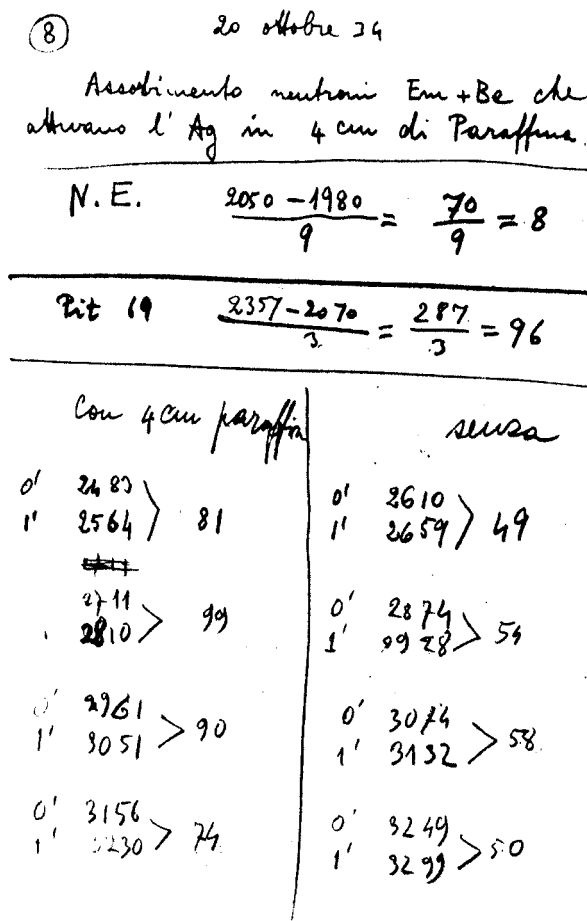 8
20 ottobre 34
Assorbimento neutroni Em + Be che
attivano l'Ag in 4 cm di Paraffina.
N. E. 2050 - 1980 / 9 = 70 / 9 = 8
Pit 19 2357 - 2070 / 3 = 287 / 3 = 96
Con 4 cm paraffin
0' 2483
1' 2564 > 81
2711
2810 > 99
0' 2961
1' 3051 > 90
0' 3156
1' 3230 > 74
senza
0' 2610
1' 2659 > 49
0' 2874
1' 2928 > 54
0' 3074
1' 3132 > 58
0' 3249
1' 3299 > 50